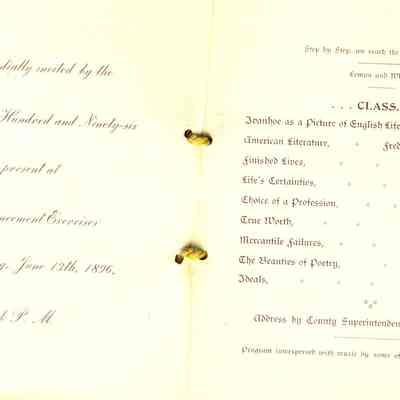 dially invited by the
Hundred and Ninety-six
present at
ncement Exercises
g, June 12th, 1896,
P. M.
Step by Step, we reach the
Lemon and
. . . CLASS.
Ivanhoe as a Picture of English Life
American Literature, Fred
Finished Lives,
Life's Certainties,
Choice of a Profession,
True Worth,
Mercantile Failures,
The Beauties of Poetry,
Ideals,
Address by County Superintenden
Program interspersed with music by some of